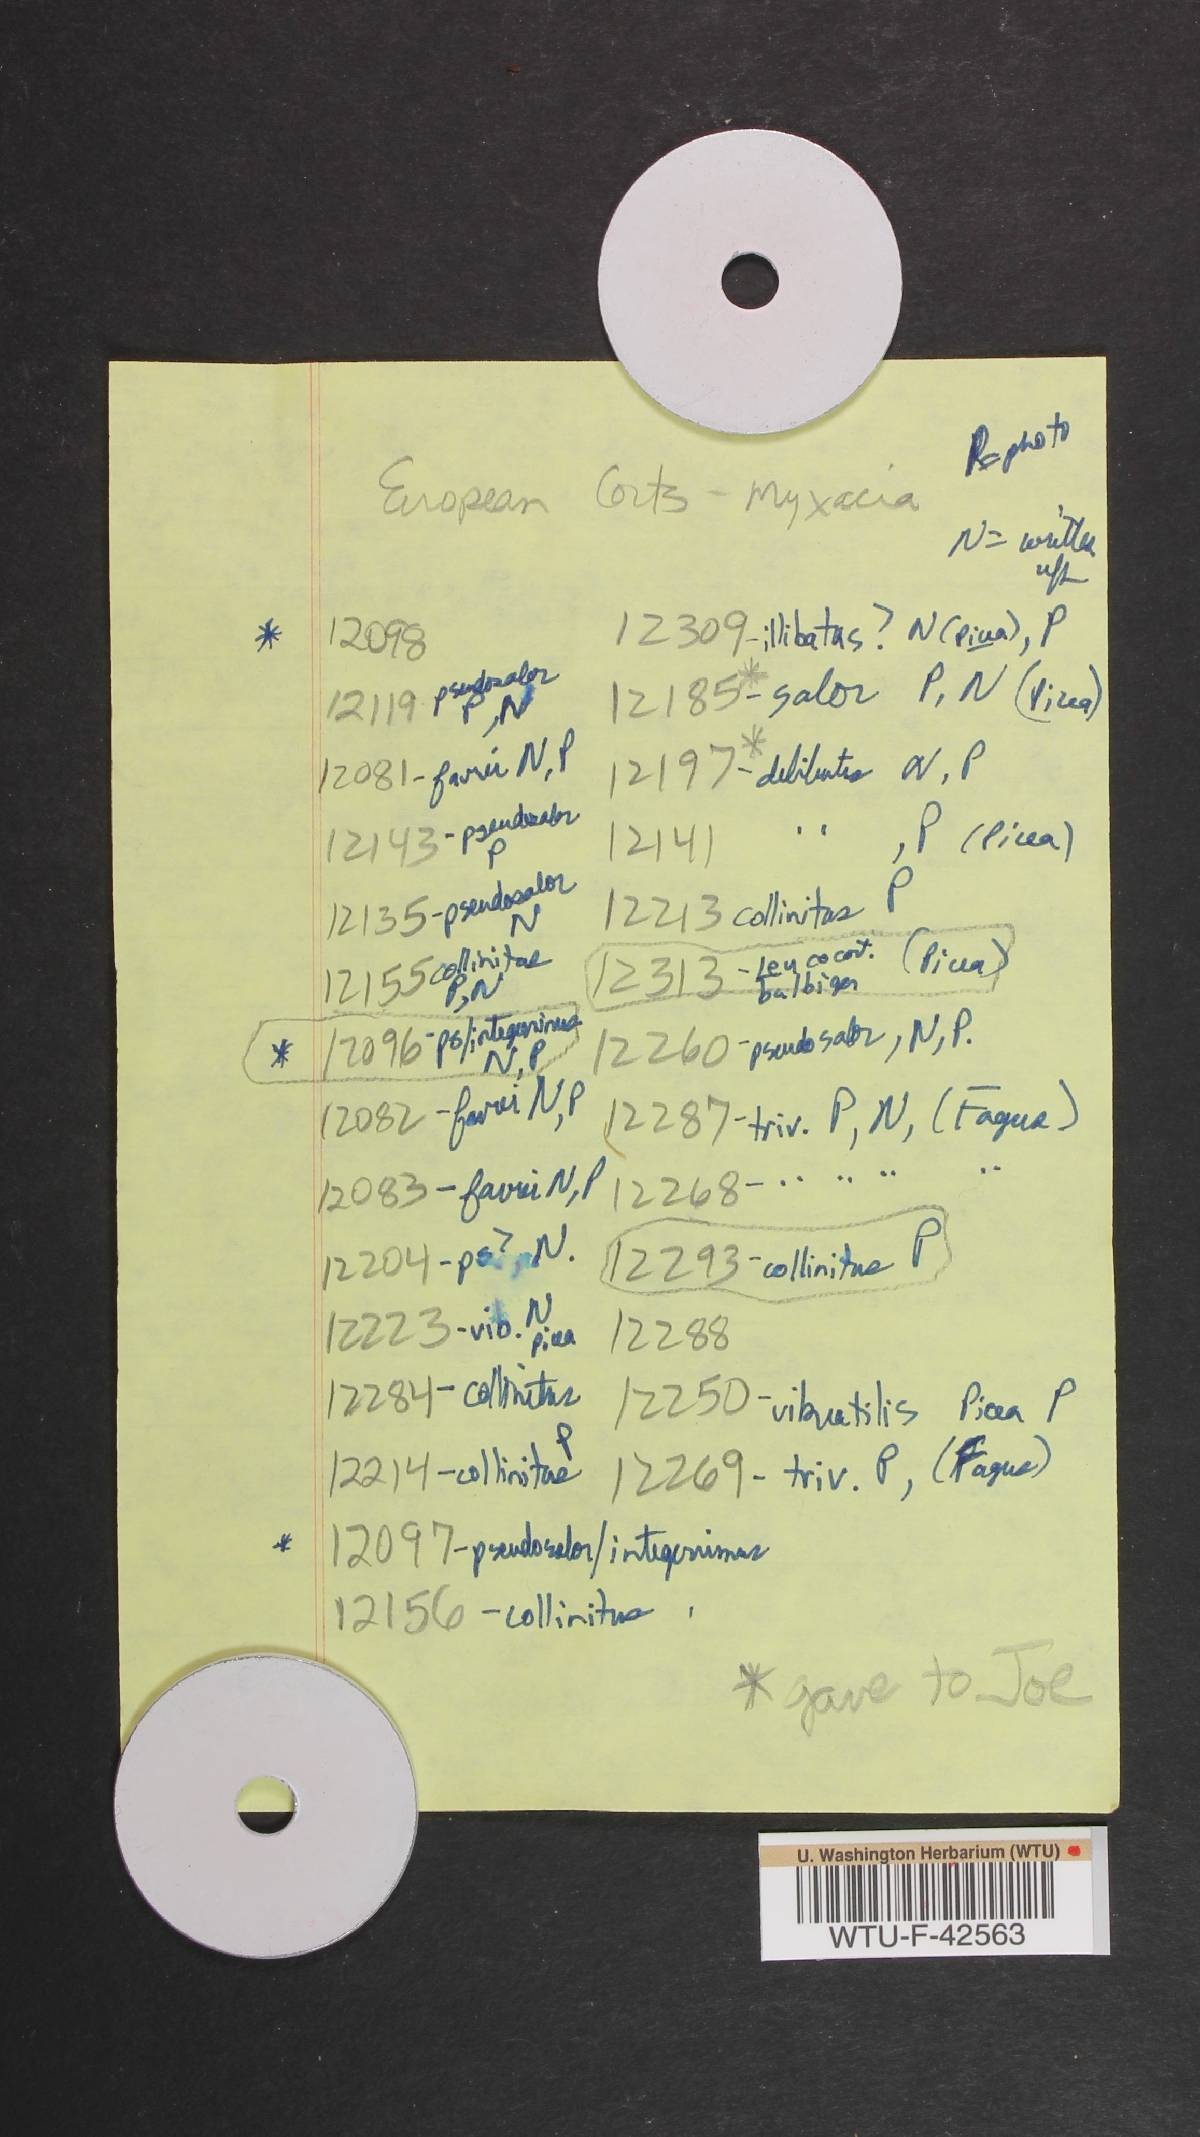 P=photo
European Corts - Myxacia
N= written
up
* 12098
12119 pseudosalor
P, N
12081-favrei N, P
12143-pseudosalor
P
12135-pseudosalor
N
12155 collinitus
P, N
* 12096-ps/integerrimus
N, P
12082-favrei N, P
12083-favrei N, P
12204-ps? N.
12223-vib. N
picea
12284-collinitus
12214-collinitus P
* 12097-pseudosalor/integerrimus
12156-collinitus
12309-illibatus? N (picea), P
12185*-salor P, N (Picea)
12197*-delibutus N, P
12141 " , P (Picea)
12213 collinitus P
12313-Leucocort. (Picea)
bulbiger
12260-pseudosalor, N, P.
12287-triv. P, N, (Fagus)
12268- " " " "
12293-collinitus P
12288
12250-vibratilis Picea P
12269-triv. P, (Fagus)
* gave to Joe
U. Washington Herbarium (WTU)
WTU-F-42563